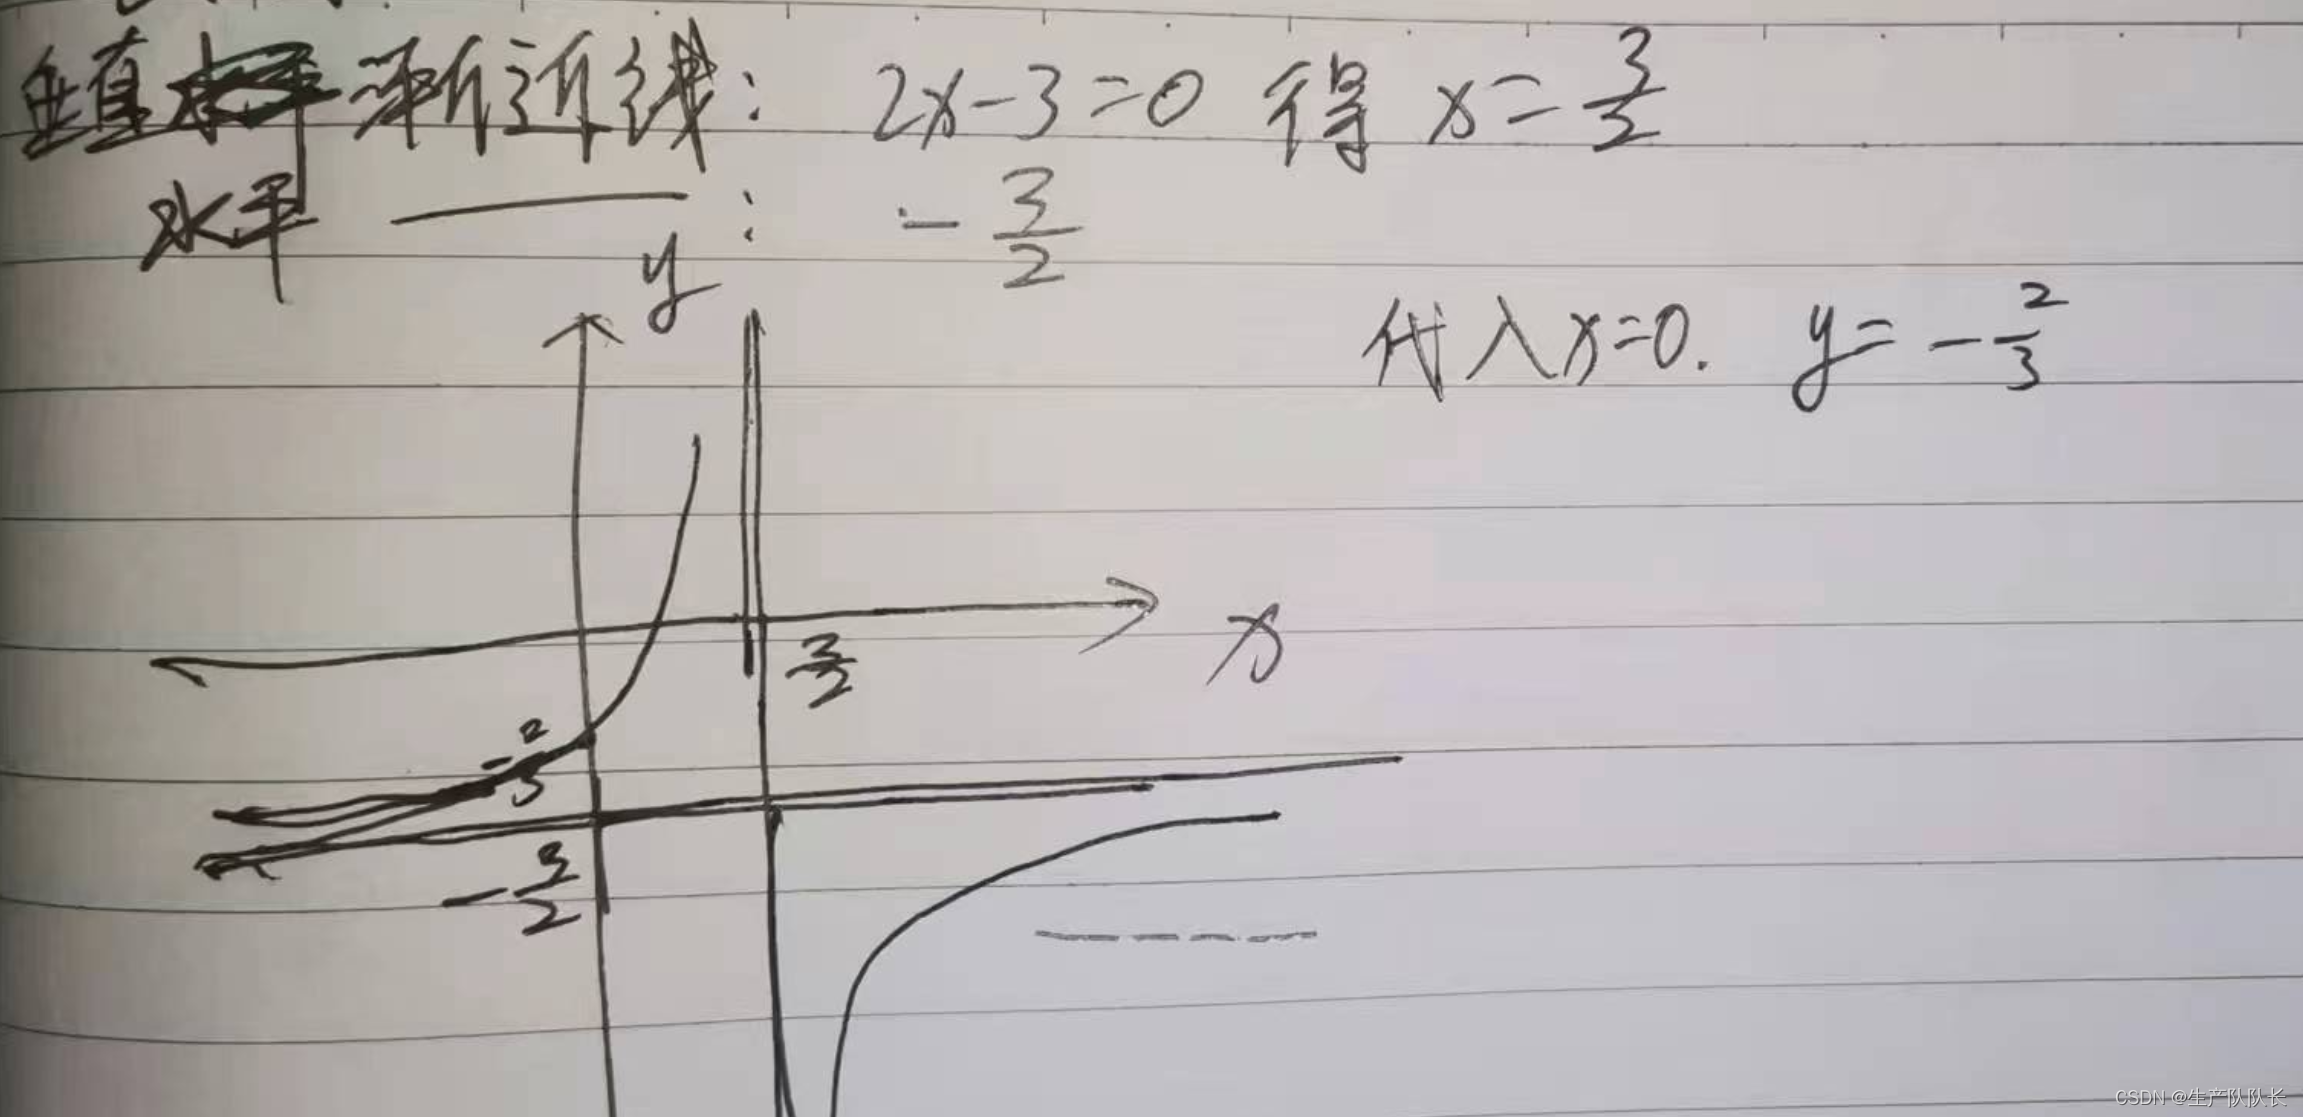 垂直渐近线: 2x-3=0 得 x=3/2
水平 ——: -3/2
代入x=0. y=-2/3
y
x
3/2
-2/3
-3/2
CSDN @生产队队长